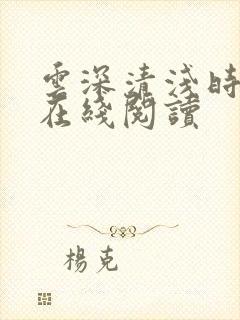 雲深清淺時
在綫閱讀
楊克